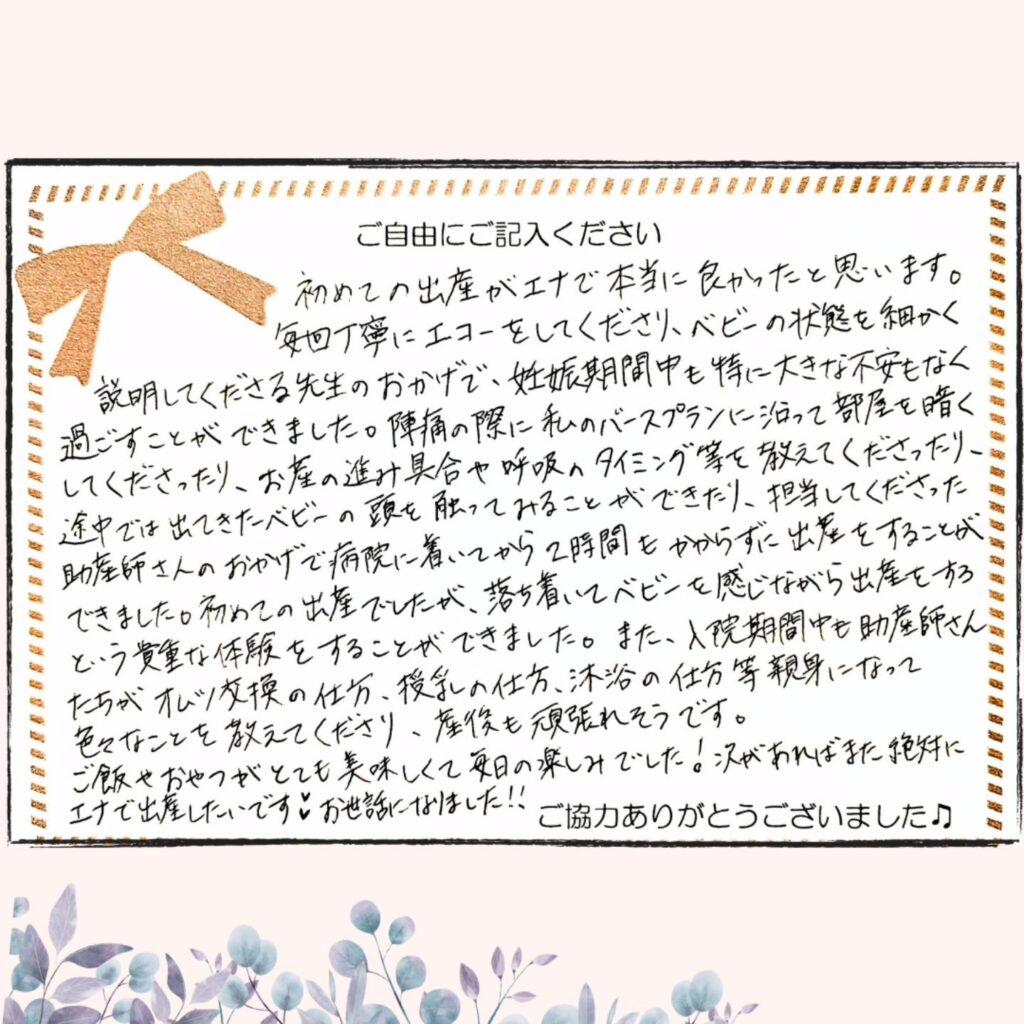 ご自由にご記入ください
初めての出産がエナで本当に良かったと思います。
毎回丁寧にエコーをしてくださり、ベビーの状態を細かく
説明してくださる先生のおかげで、妊娠期間中も特に大きな不安もなく
過ごすことができました。陣痛の際に私のバースプランに沿って部屋を暗く
してくださったり、お産の進み具合や呼吸のタイミング等を教えてくださったり、
途中では出てきたベビーの頭を触ってみることができたり、担当してくださった
助産師さんのおかげで病院に着いてから2時間もかからずに出産をすることが
できました。初めての出産でしたが、落ち着いてベビーを感じながら出産をする
という貴重な体験をすることができました。また、入院期間中も助産師さん
たちがオムツ交換の仕方、授乳の仕方、沐浴の仕方等親身になって
色々なことを教えてくださり、産後も頑張れそうです。
ご飯やおやつがとても美味しくて毎日の楽しみでした!次があればまた絶対に
エナで出産したいです♥お世話になりました!!
ご協力ありがとうございました♫